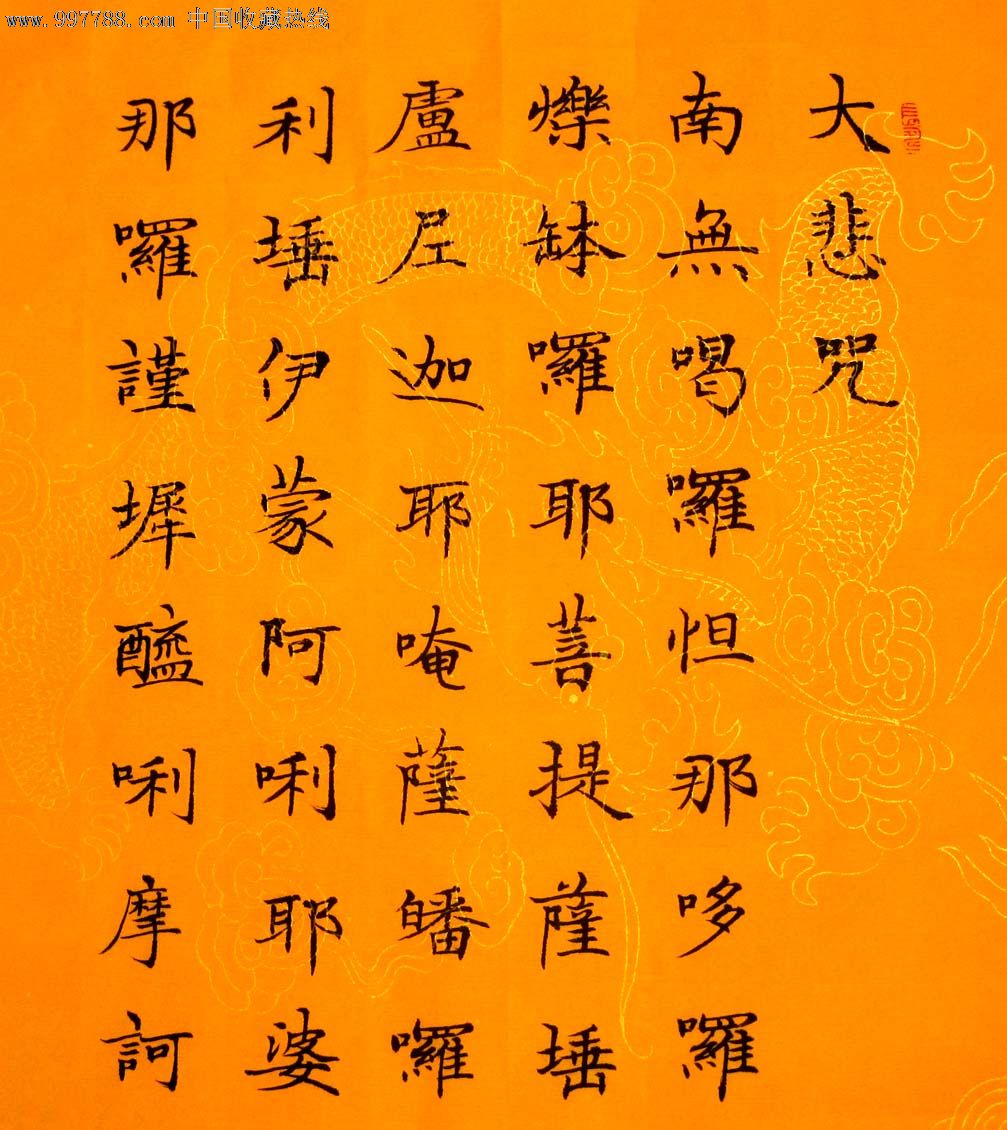 www.997788.com 中国收藏热线
大悲咒
南無喝囉怛那哆囉
爍缽囉耶菩提薩埵
盧迦耶唵薩皤囉
利埵伊蒙阿唎耶婆
那囉謹墀醯唎摩訶